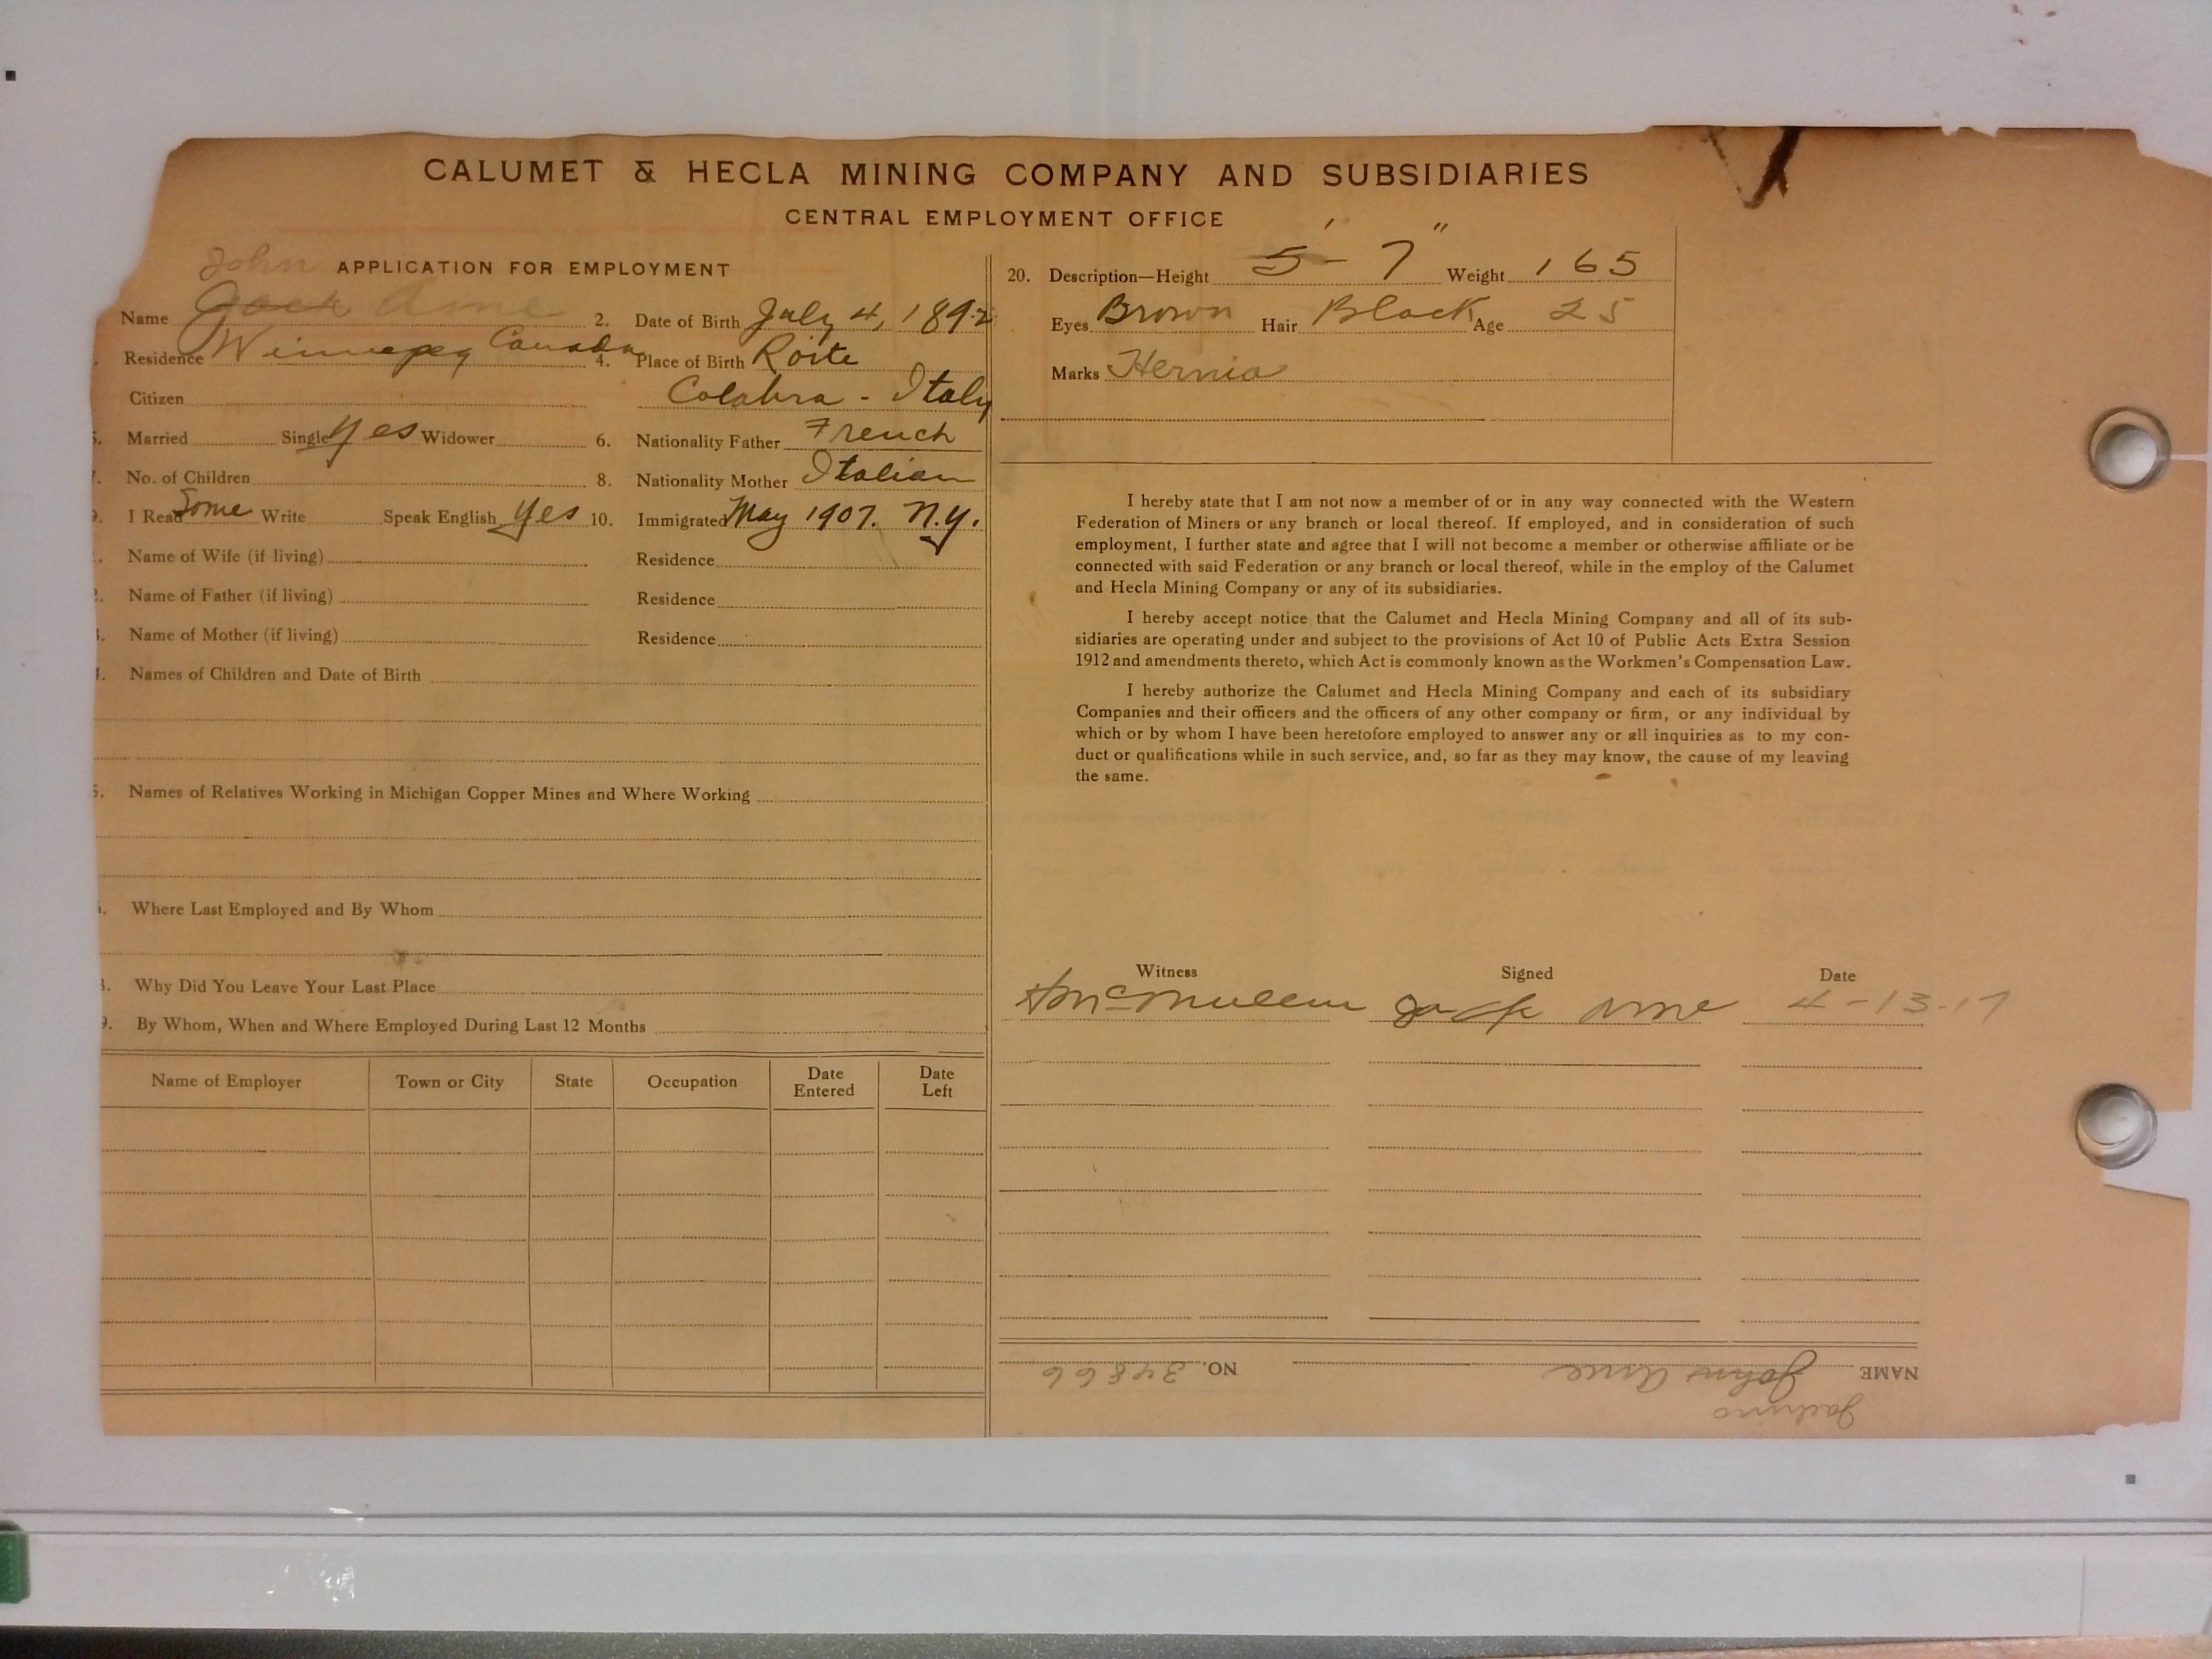 CALUMET & HECLA MINING COMPANY AND SUBSIDIARIES
CENTRAL EMPLOYMENT OFFICE
John APPLICATION FOR EMPLOYMENT
Name Jack Ame 2. Date of Birth July 4, 1892
Residence Winnepeg Canada 4. Place of Birth Roite
Citizen Colabra - Italy
Married Single yes Widower 6. Nationality Father French
No. of Children 8. Nationality Mother Italian
I Read Some Write Speak English yes 10. Immigrated May 1907. N.Y.
Name of Wife (if living) Residence
Name of Father (if living) Residence
Name of Mother (if living) Residence
Names of Children and Date of Birth
Names of Relatives Working in Michigan Copper Mines and Where Working
Where Last Employed and By Whom
Why Did You Leave Your Last Place
By Whom, When and Where Employed During Last 12 Months
Name of Employer Town or City State Occupation Date Entered Date Left
20. Description—Height 5'-7" Weight 165
Eyes Brown Hair Black Age 25
Marks Hernia
I hereby state that I am not now a member of or in any way connected with the Western
Federation of Miners or any branch or local thereof. If employed, and in consideration of such
employment, I further state and agree that I will not become a member or otherwise affiliate or be
connected with said Federation or any branch or local thereof, while in the employ of the Calumet
and Hecla Mining Company or any of its subsidiaries.
I hereby accept notice that the Calumet and Hecla Mining Company and all of its sub-
sidiaries are operating under and subject to the provisions of Act 10 of Public Acts Extra Session
1912 and amendments thereto, which Act is commonly known as the Workmen's Compensation Law.
I hereby authorize the Calumet and Hecla Mining Company and each of its subsidiary
Companies and their officers and the officers of any other company or firm, or any individual by
which or by whom I have been heretofore employed to answer any or all inquiries as to my con-
duct or qualifications while in such service, and, so far as they may know, the cause of my leaving
the same.
Witness Signed Date
McMullen Jack Ame 4-13-17
NAME John Ame NO. 34866